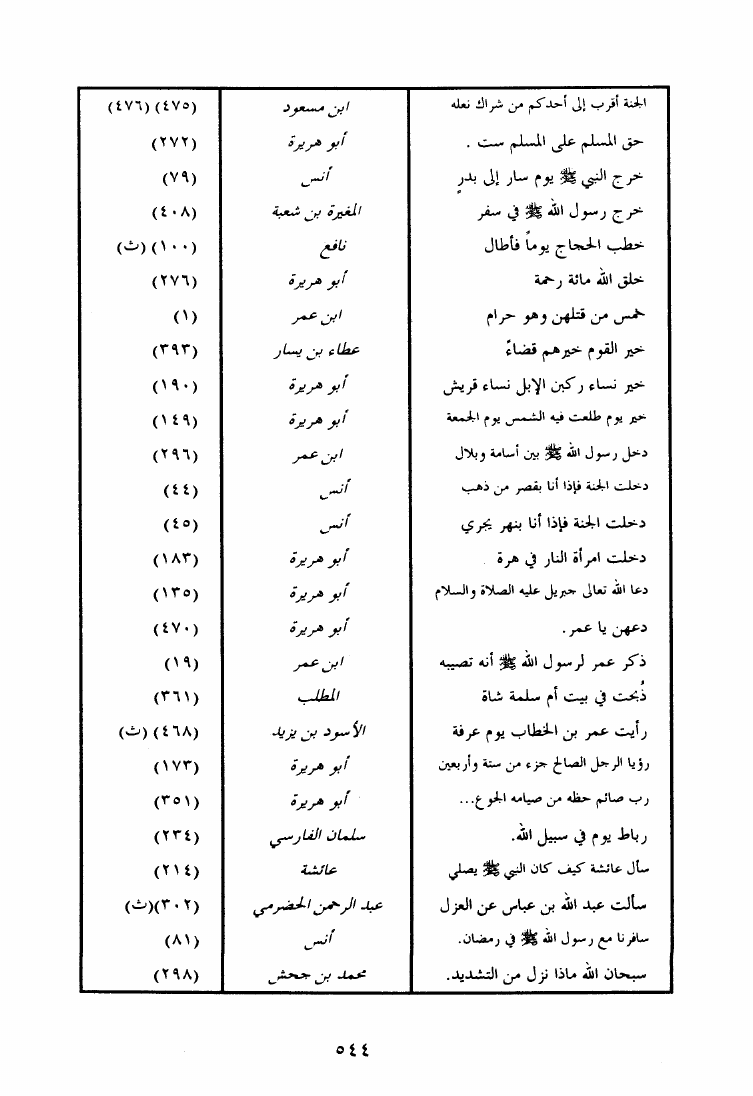 الجنة أقرب إلى أحدكم من شراك نعله ابن مسعود (٤٧٥) (٤٧٦)
حق المسلم على المسلم ست . أبو هريرة (٢٧٢)
خرج النبي ﷺ يوم سار إلى بدرٍ أنس (٧٩)
خرج رسول الله ﷺ في سفر المغيرة بن شعبة (٤٠٨)
خطب الحجاج يوماً فأطال نافع (١٠٠) (ث)
خلق الله مائة رحمة أبو هريرة (٢٧٦)
خمس من قتلهن وهو حرام ابن عمر (١)
خير القوم خيرهم قضاءً عطاء بن يسار (٣٩٣)
خير نساء ركبن الإبل نساء قريش أبو هريرة (١٩٠)
خير يوم طلعت فيه الشمس يوم الجمعة أبو هريرة (١٤٩)
دخل رسول الله ﷺ بين أسامة وبلال ابن عمر (٢٩٦)
دخلت الجنة فإذا أنا بقصر من ذهب أنس (٤٤)
دخلت الجنة فإذا أنا بنهر يجري أنس (٤٥)
دخلت امرأة النار في هرة أبو هريرة (١٨٣)
دعا الله تعالى جبريل عليه الصلاة والسلام أبو هريرة (١٣٥)
دعهن يا عمر. أبو هريرة (٤٧٠)
ذكر عمر لرسول الله ﷺ أنه تصيبه ابن عمر (١٩)
ذُبحت في بيت أم سلمة شاة المطلب (٣٦١)
رأيت عمر بن الخطاب يوم عرفة الأسود بن يزيد (٤٦٨) (ث)
رؤيا الرجل الصالح جزء من ستة وأربعين أبو هريرة (١٧٣)
رب صائم حظه من صيامه الجوع... أبو هريرة (٣٥١)
رباط يوم في سبيل الله. سلمان الفارسي (٢٣٤)
سأل عائشة كيف كان النبي ﷺ يصلي عائشة (٢١٤)
سألت عبد الله بن عباس عن العزل عبد الرحمن الحضرمي (٣٠٢)(ث)
سافرنا مع رسول الله ﷺ في رمضان. أنس (٨١)
سبحان الله ماذا نزل من التشديد. محمد بن جحش (٢٩٨)
٥٤٤